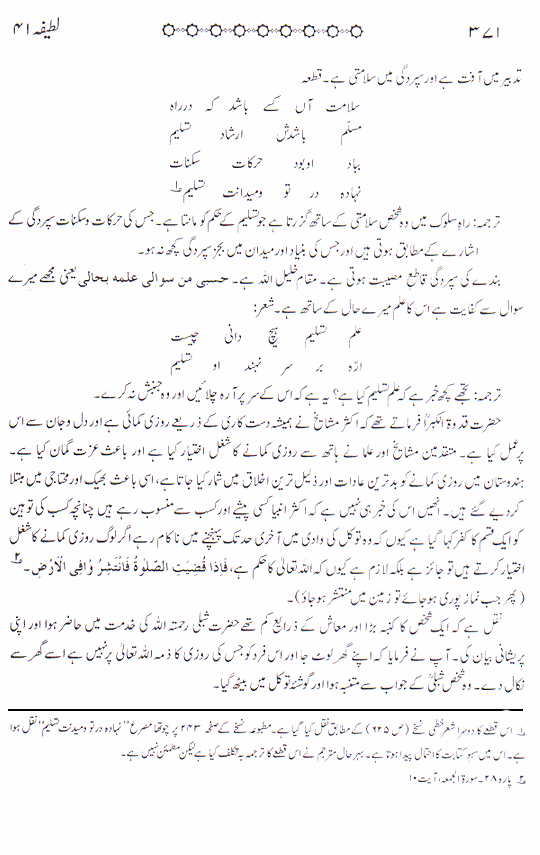 ۳۷۱ لطیفہ ۴۱
تدبیر میں آفت ہے اور سپردگی میں سلامتی ہے۔ قطعہ
سلامت آں کسے باشد کہ درراہ
مسلّم باشدش ارشاد تسلیم
بیاد اوبود حرکات سکنات
نہادہ در تو ومیدانت تسلیم ؂۱
ترجمہ: راہِ سلوک میں وہ شخص سلامتی کے ساتھ گزرتا ہے جو تسلیم کے حکم کو مانتا ہے۔ جس کی حرکات و سکنات سپردگی کے
اشارے کے مطابق ہوتی ہیں اور جس کی بنیاد اور میدان میں بجز سپردگی کچھ نہ ہو۔
بندے کی سپردگی قاطع مصیبت ہوتی ہے۔ مقام خلیل اللہ ہے۔ حسبی من سوالی علمه بحالی یعنی مجھے میرے
سوال سے کفایت ہے اس کا علم میرے حال کے ساتھ ہے۔ شعر:
علم تسلیم ہیچ دانی چیست
ارّہ بر سر نہند او تسلیم
ترجمہ: تجھے کچھ خبر ہے کہ علم تسلیم کیا ہے؟ یہ ہے کہ اس کے سر پر آرہ چلائیں اور وہ جنبش نہ کرے۔
حضرت قدوۃ الکبراؒ فرماتے تھے کہ اکثر مشایخ نے ہمیشہ دست کاری کے ذریعے روزی کمائی ہے اور دل و جان سے اس
پر عمل کیا ہے۔ متقدمین مشایخ اور علما نے ہاتھ سے روزی کمانے کا شغل اختیار کیا ہے اور باعث عزت گمان کیا ہے۔
ہندوستان میں روزی کمانے کو بدترین عادات اور ذلیل ترین اخلاق میں شمار کیا جاتا ہے، اسی باعث بھیک اور محتاجی میں مبتلا
کردیے گئے ہیں۔ انھیں اس کی خبر ہی نہیں ہے کہ اکثر انبیا کسی پیشے اور کسب سے منسوب رہے ہیں چنانچہ کسب کی توہین
کو ایک قسم کا کفر کہا گیا ہے کیوں کہ وہ توکل کی وادی میں آخری حد تک پہنچنے میں ناکام رہے اگر لوگ روزی کمانے کا شغل
اختیار کرتے ہیں تو جائز ہے بلکہ لازم ہے کیوں کہ اللہ تعالیٰ کا حکم ہے، فَاِذَا قُضِيَتِ الصَّلٰوةُ فَانْتَشِرُ وْافِى الْاَرْضِ۔ ؂۲
(پھر جب نماز پوری ہوجائے تو زمین میں منتشر ہوجاؤ)۔
نقل ہے کہ ایک شخص کا کنبہ بڑا اور معاش کے ذرایع کم تھے حضرت شبلی رحمتہ اللہ کی خدمت میں حاضر ہوا اور اپنی
پریشانی بیان کی۔ آپ نے فرمایا کہ اپنے گھر لوٹ جا اور اس فرد کو جس کی روزی کا ذمہ اللہ تعالیٰ پر نہیں ہے اسے گھر سے
نکال دے۔ وہ شخص شبلیؒ کے جواب سے متنبہ ہوا اور گوشۂ توکل میں بیٹھ گیا۔
؂۱ اس قطعے کا دوسرا شعر خطی نسخے (ص ۶۲۵) کے مطابق نقل کیا گیا ہے۔ مطبوعہ نسخے کے صفحہ ۲۴۳ پر چوتھا مصرع "نہادہ در تو و میدنت تسلیم" نقل ہوا
ہے۔ اس میں سہو کتابت کا احتمال پیدا ہوتا ہے۔ بہر حال مترجم نے اس قطعے کا ترجمہ بہ تکلف کیا ہے لیکن مطمئن نہیں ہے۔
؂۲ پارہ ۲۸۔ سورۃ الجمعہ، آیت ۱۰